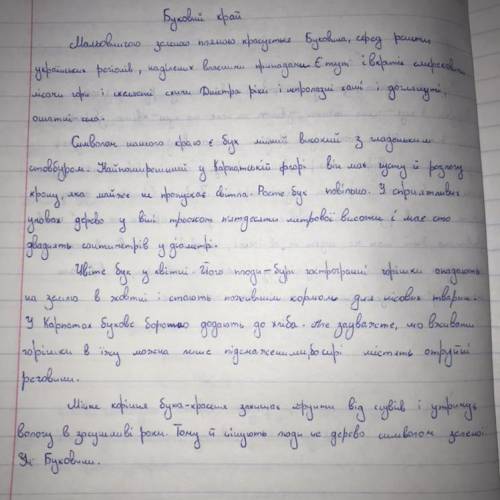 Буковий край
Мальовничою зеленою плямою красується Буковина, серед решти
українських регіонів, наділених власними принадами. Є тут і вкриті смерековими
лісами гори і скелясті схили Дністра ріки і непролазні хащі і доглянуті,
ошатні села.
Символом нашого краю є бук міцний високий з гладеньким
стовбуром. Найпоширеніший у Карпатській флорі він має густу й розлогу
крону, яка майже не пропускає світла. Росте бук повільно. У сприятливих
умовах дерево у віці трьохсот пятдесяти метрової висоти і має сто
двадцять сантиметрів у діаметрі.
Цвіте бук у квітні. Його плоди-бурі тостогранні горішки опадають
на землю в жовтні і стають поживним кормом для лісових тварин.
У Карпатах букове борошно додають до хліба. Але зауважте, що вживати
горішки в їжу можна лише підсмаженими, бо сирі містять отруйні
речовини.
Міцне коріння бука-красеня захищає ґрунти від зсувів і утримує
вологу в засушливі роки. Тому й вішують люди це дерево символом зелено-
ї Буковини.